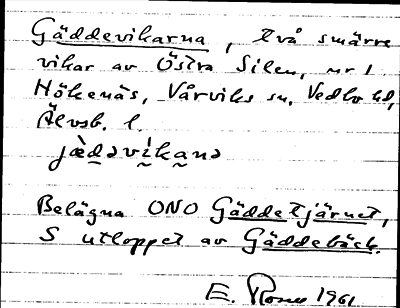 Gäddevikarna, två smärre
vikar av Östra Silen, nr 1
Hökenäs, Vårviks sn, Vedbo hd,
Älvsb. l.
jædəvikana
Belägna ONO Gäddetjärnet,
S utloppet av Gäddebäck.
E. 1961